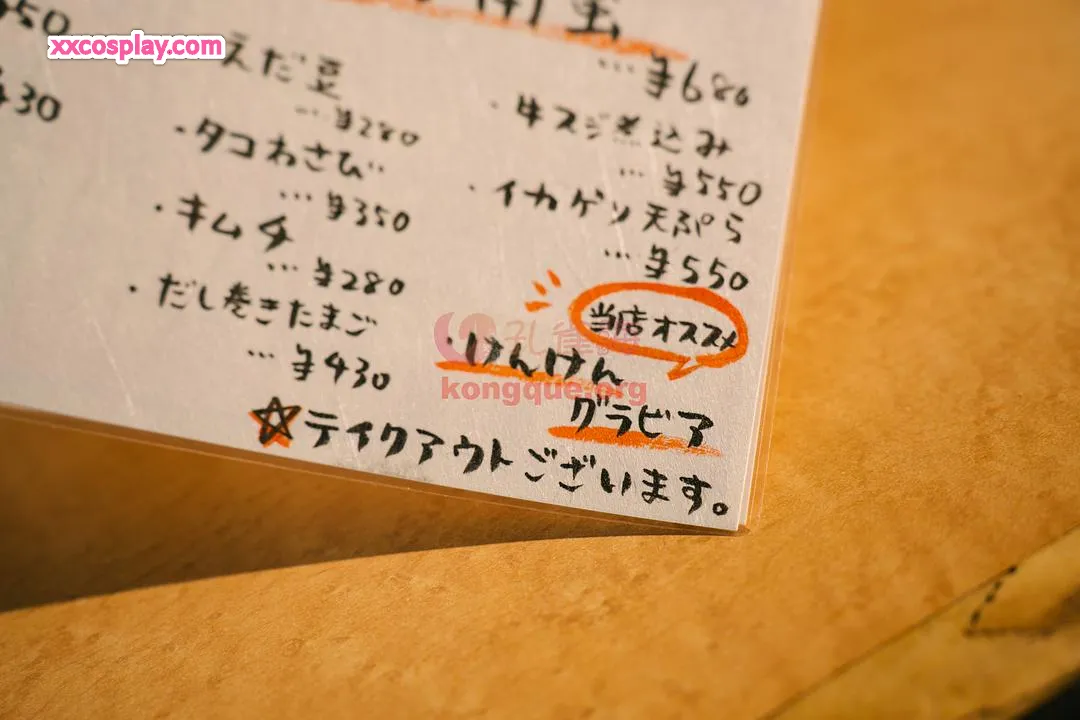 xxcosplay.com
えだ豆
…¥280
・タコわさび
…¥350
・キムチ
…¥280
・だし巻きたまご
…¥430
…¥680
・牛スジ煮込み
…¥550
・イカゲソ天ぷら
…¥550
当店オススメ
・けんけん
グラビア
kongque.org
☆テイクアウトございます。